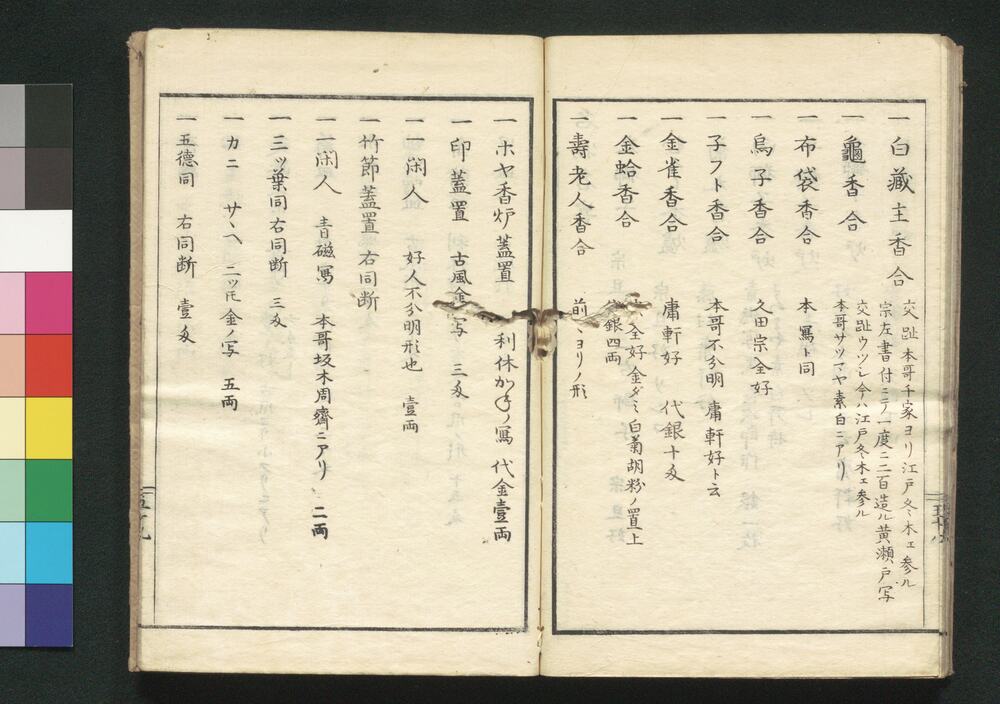 一白藏主香合 交趾本哥千家ヨリ江戸冬木エ参ル
宗左書付ニテ一度ニ二百造ル黄瀬戸写
一龜香合 交趾ウツシ今ハ江戸冬木エ参ル
本哥サツマヤ素白ニアリ
一布袋香合 本寫ト同
一烏子香合 久田宗全好
一子フト香合 本哥不分明 庸軒好ト云
一金雀香合 庸軒好 代銀十匁
一金蛤香合 全好金ダミ白菊胡粉ノ置上
銀四両
一壽老人香合 前ヽヨリノ形
一ホヤ香炉蓋置 利休 寫 代金壹両
一印蓋置 古風金写 三匁
一一閑人 好人不分明形也 壹両
一竹節蓋置 右同断
一一閑人 青磁寫 本哥坂本周齋ニアリ 二両
一三ツ葉同右同断 三匁
一カニ サヽヘ 二ツ𪜈金ノ写 五両
一五德同 右同断 壹匁
五十八
五十九